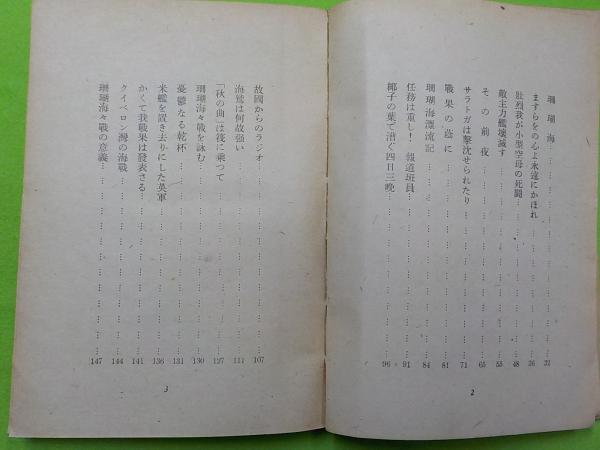 珊瑚海…………………………32
ますらをの心よ永遠にかほれ…………………………36
壯烈我が小型空母の死闘…………………………48
敵主力艦壊滅す…………………………55
その前夜…………………………65
サラトガは撃沈せられたり…………………………71
戰果の蔭に…………………………81
珊瑚海漂流記…………………………84
任務は重し！報道班員…………………………91
椰子の葉で漕ぐ四日三晩…………………………96
2
故國からのラジオ…………………………107
海鷲は何故强い…………………………111
「秋の曲」は筏に乘つて…………………………127
珊瑚海々戰を詠む…………………………130
憂鬱なる乾杯…………………………131
米艦を置き去りにした英軍…………………………136
かくて我戰果は發表さる…………………………141
クイベロン灣の海戰…………………………144
珊瑚海々戰の意義…………………………147
3